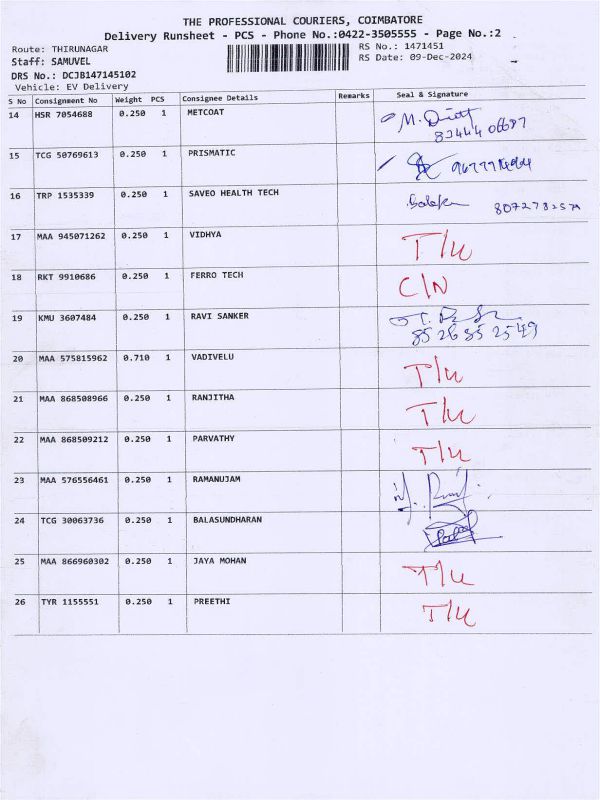 THE PROFESSIONAL COURIERS, COIMBATORE
Delivery Runsheet - PCS - Phone No.:0422-3505555 - Page No.:2
Route: THIRUNAGAR
RS No.: 1471451
Staff: SAMUVEL
RS Date: 09-Dec-2024
DRS No.: DCJB147145102
Vehicle: EV Delivery
S No Consignment No Weight PCS Consignee Details Remarks Seal & Signature
14 HSR 7054688 0.250 1 METCOAT
15 TCG 50769613 0.250 1 PRISMATIC
16 TRP 1535339 0.250 1 SAVEO HEALTH TECH
17 MAA 945071262 0.250 1 VIDHYA T/U
18 RKT 9910686 0.250 1 FERRO TECH C/N
19 KMU 3607484 0.250 1 RAVI SANKER
85 26 35 25 49
20 MAA 575815962 0.710 1 VADIVELU T/U
21 MAA 868508966 0.250 1 RANJITHA T/U
22 MAA 868509212 0.250 1 PARVATHY T/U
23 MAA 576556461 0.250 1 RAMANUJAM
24 TCG 30063736 0.250 1 BALASUNDHARAN
25 MAA 866960302 0.250 1 JAYA MOHAN T/U
26 TYR 1155551 0.250 1 PREETHI T/U